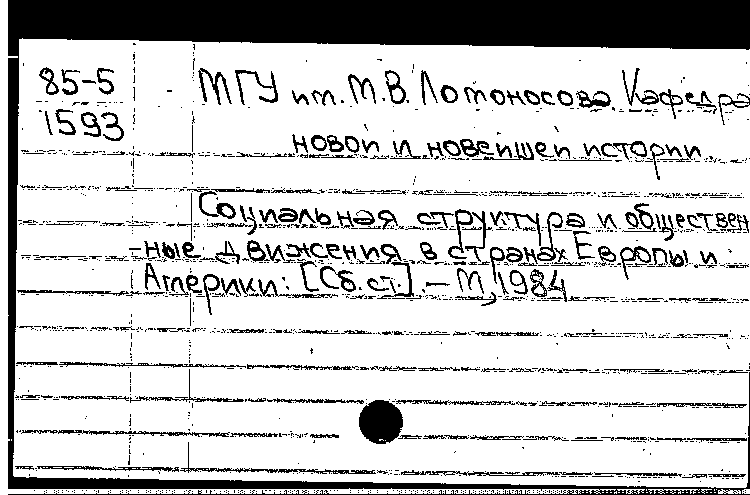 85-5 МГУ им. М.В. Ломоносова. Кафедра
1593
новой и новейшей истории.
Социальная структура и обществен
-ные движения в странах Европы и
Америки: [Сб. ст.]. – М, 1984